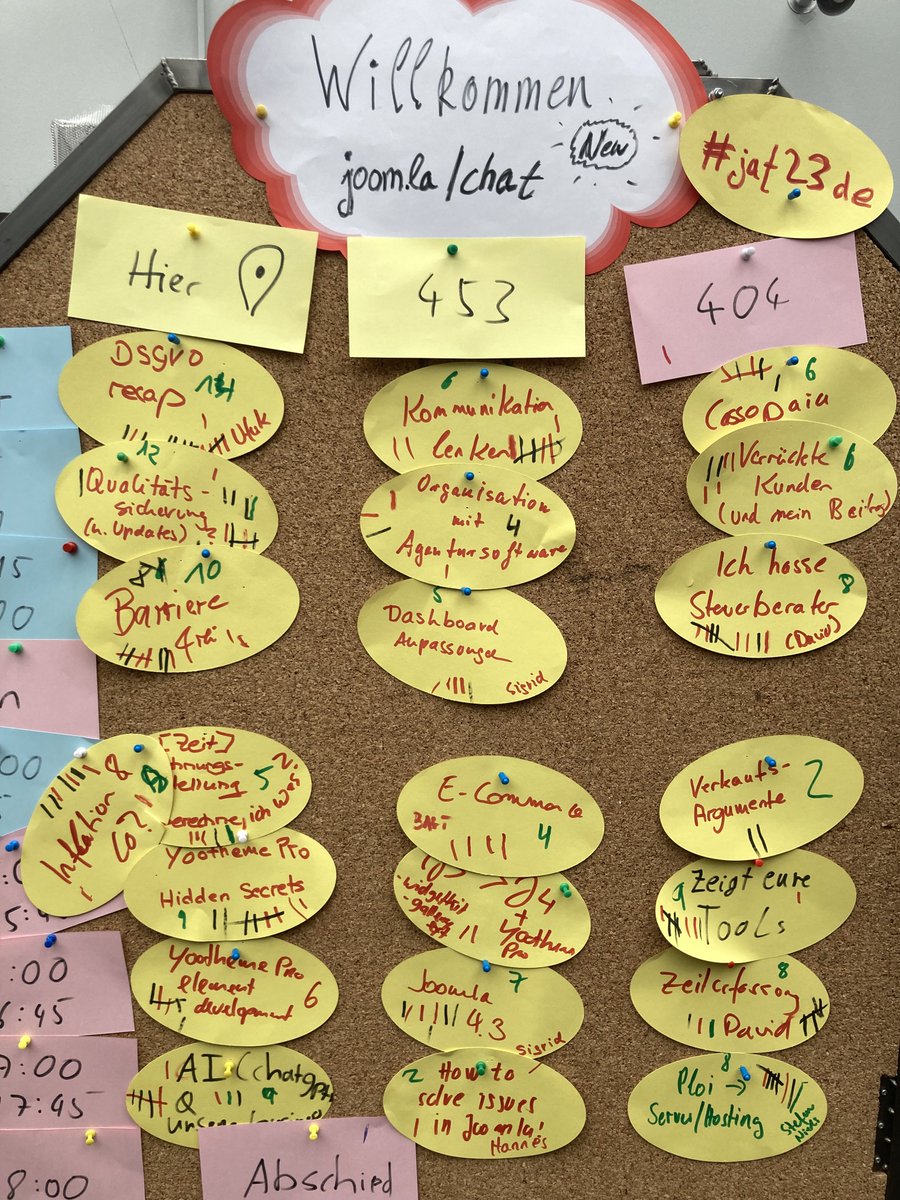 Willkommen
joomla/chat
New
#jat23de
Hier
453
404
DSGVO
recap
14
Kommunikation
lenken
6
6
12
Qualitäts-
sicherung
(n. Updates)
Organisation
mit
4
Agentursoftware
Verrückte
6
Kunden
(und mein Beitrag)
8
10
Barriere
5
Dashboard
Anpassungen
Sigrid
Ich hasse
Steuerberater
8
(David)
15
00
n
00
[Zeit]
5
Inflation &
Co?
E-Commerce
4
Verkaufs-
Argumente
2
Yootheme Pro
Hidden Secrets
9
- widgetkit
4
+
Yootheme
Pro
9
Zeigt eure
Tools
Yootheme Pro
element
development
6
Joomla
7
4.3
Sigrid
8
Zeiterfassung
David
:00
6:45
7:00
17:45
8:00
AI (chat
9
2
How to
solve issues
in Joomla!
Hannes
8
Ploi →
Server/Hosting
Abschied